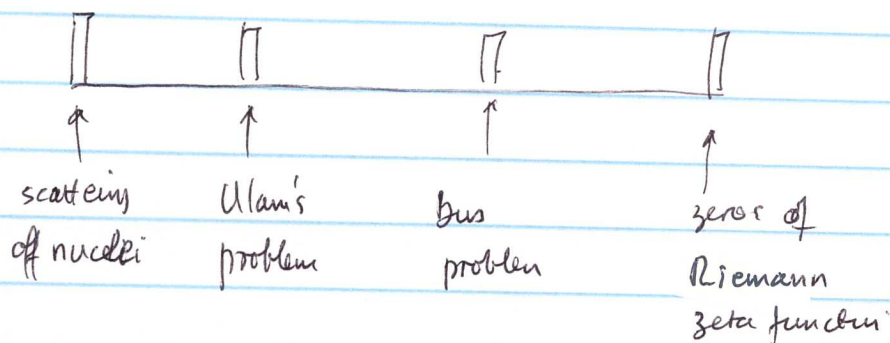 scattering
off nuclei
Ulam's
problem
bus
problem
zeros of
Riemann
zeta function